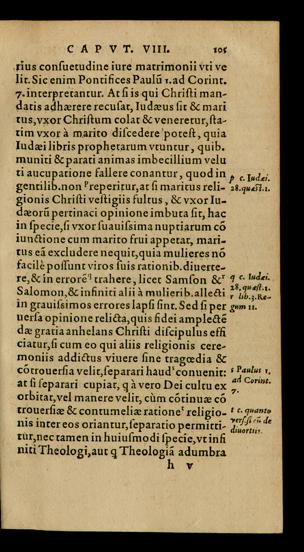 CAPVT. VIII. 105
rius consuetudine iure matrimonii vti ve
lit. Sic enim Pontifices Paulū 1. ad Corint.
7. interpretantur. At si is qui Christi man-
datis adhærere recusat, Iudæus sit & mari
tus, vxor Christum colat & veneretur, sta-
tim vxor à marito discedere potest, quia
Iudæi libris prophetarum vtuntur, quib.
muniti & parati animas imbecillium velu
ti aucupatione fallere conantur, quod in
gentilib. non p reperitur, at si maritus reli-
gionis Christi vestigiis fultus, & vxor Iu-
dæorū pertinaci opinione imbuta sit, hac
in specie, si vxor suauissima nuptiarum cō
iunctione cum marito frui appetat, mari-
tus eā excludere nequit, quia mulieres nō
facilè possunt viros suis rationib. diuerte-
re, & in errorē q trahere, licet Samson & r
Salomon, & infiniti alii à mulierib. allecti
in grauissimos errores lapsi sint. Sed si per
uersa opinione relicta, quis fidei amplectē
dæ gratia anhelans Christi discipulus effi
ciatur, si cum eo qui aliis religionis cere-
moniis addictus viuere sine tragœdia &
cōtrouersia velit, separari haud s conuenit:
at si separari cupiat, q à vero Dei cultu ex
orbitat, vel manere velit, cùm cōtinuæ cō
trouersiæ & contumeliæ ratione t religio-
nis inter eos oriantur, separatio permitti-
tur, nec tamen in huiusmodi specie, vt infi
niti Theologi, aut q Theologiā adumbra
h v
p c. Iudæi.
28. quæst. 1.
q c. Iudæi.
28. quæst. 1.
r lib. 3. Re-
gum 11.
s Paulus 1.
ad Corint.
7.
t c. quanto
vers. si en de
diuortiis.